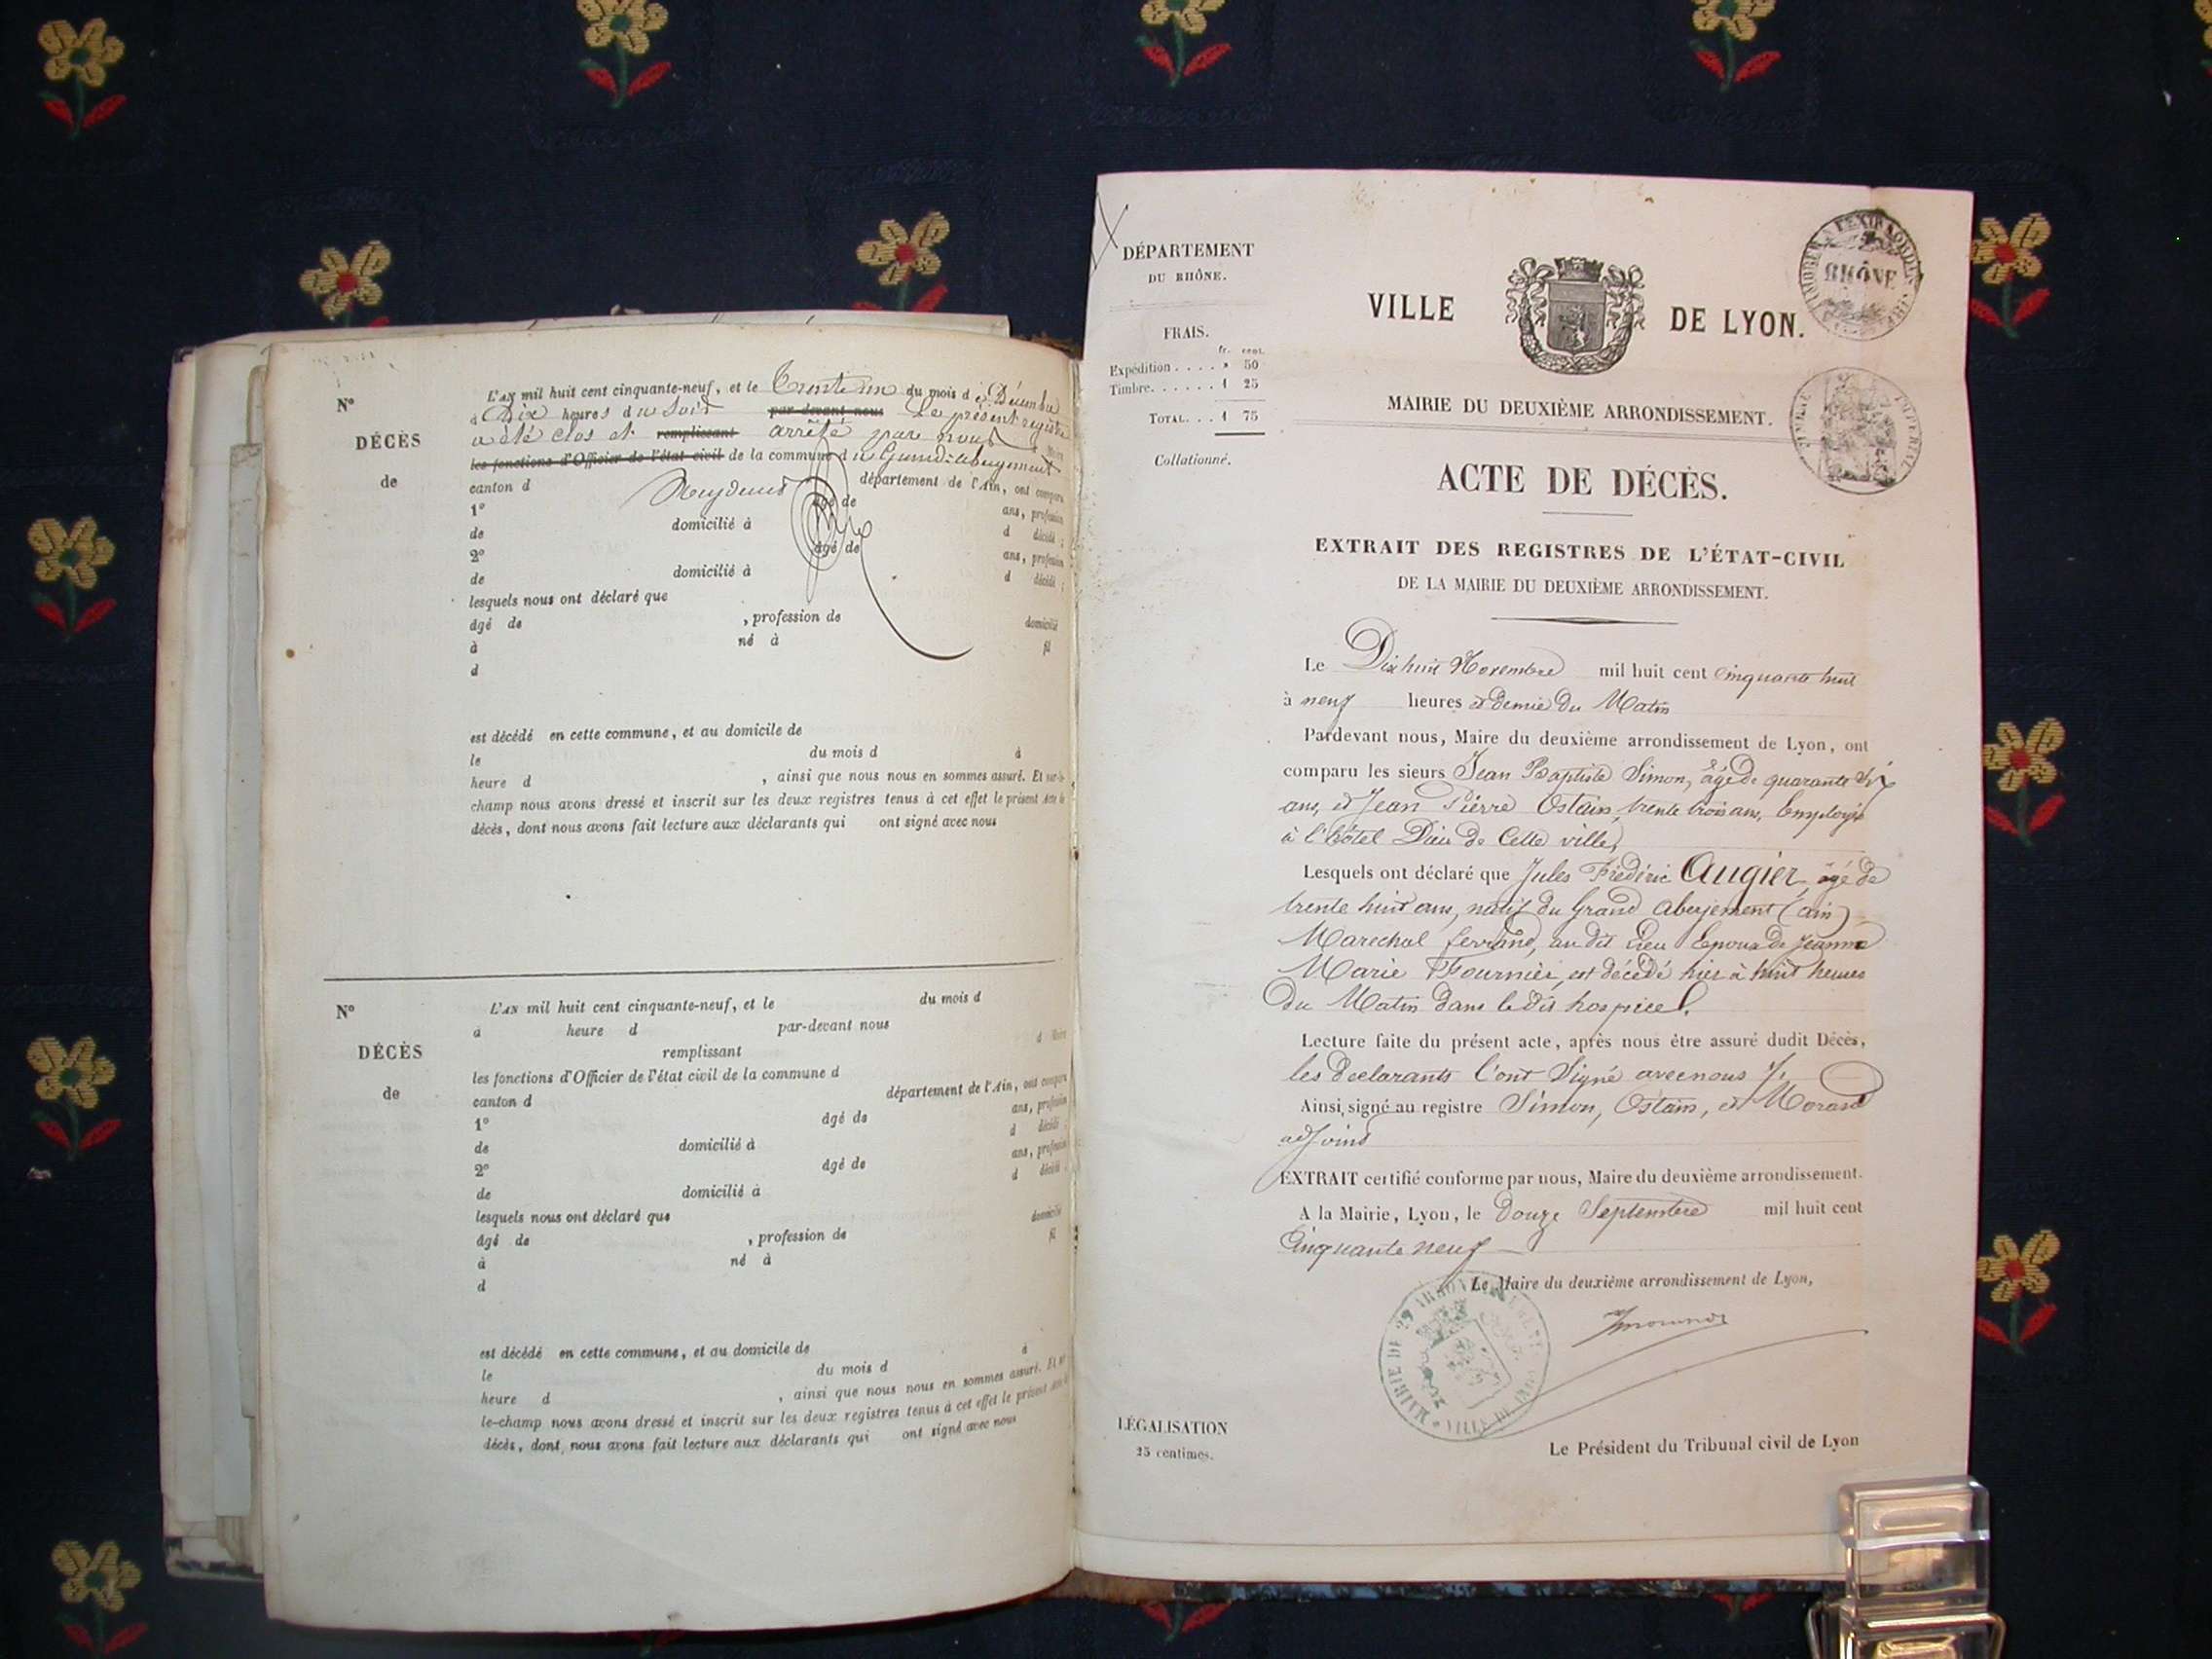 N°
DÉCÈS
de
L'AN mil huit cent cinquante-neuf, et le Trente un du mois de Décembre
à Dix heures du Soir par-devant nous Le présent registre
a été clos et remplissant arrêté par nous Maire
les fonctions d'Officier de l'état civil de la commune du Grand-abergement
canton d département de l'Ain, ont comparu
1° âgé de ans, profession
de domicilié à d décédé ;
2° âgé de ans, profession
de domicilié à d décédé ;
lesquels nous ont déclaré que
âgé de , profession de domicilié
à né à fil
d
est décédé en cette commune, et au domicile de
le du mois d à
heure d , ainsi que nous nous en sommes assuré. Et sur-le-
champ nous avons dressé et inscrit sur les deux registres tenus à cet effet le présent Acte de
décès, dont nous avons fait lecture aux déclarants qui ont signé avec nous
N°
DÉCÈS
de
L'AN mil huit cent cinquante-neuf, et le du mois d
à heure d par-devant nous
remplissant d Maire
les fonctions d'Officier de l'état civil de la commune d
canton d département de l'Ain, ont comparu
1° âgé de ans, profession
de domicilié à d décédé ;
2° âgé de ans, profession
de domicilié à d décédé ;
lesquels nous ont déclaré que
âgé de , profession de domicilié
à né à fil
d
est décédé en cette commune, et au domicile de
le du mois d à
heure d , ainsi que nous nous en sommes assuré. Et sur-
le-champ nous avons dressé et inscrit sur les deux registres tenus à cet effet le présent Acte de
décès, dont nous avons fait lecture aux déclarants qui ont signé avec nous
DÉPARTEMENT
DU RHÔNE.
FRAIS.
fr. cent.
Expédition . . . . » 50
Timbre. . . . . . 1 25
TOTAL. . . 1 75
Collationné.
VILLE DE LYON.
RHÔNE
MAIRIE DU DEUXIÈME ARRONDISSEMENT.
TIMBRE IMPÉRIAL
ACTE DE DÉCÈS.
EXTRAIT DES REGISTRES DE L'ÉTAT-CIVIL
DE LA MAIRIE DU DEUXIÈME ARRONDISSEMENT.
Le Dix huit Novembre mil huit cent cinquante huit
à neuf heures et demie du Matin
Pardevant nous, Maire du deuxième arrondissement de Lyon, ont
comparu les sieurs Jean Baptiste Simon, âgé de quarante six
ans, et Jean Pierre Ostain, trente trois ans, Employés
à l'hôtel Dieu de Cette ville,
Lesquels ont déclaré que Jules Frédéric Augier, âgé de
trente huit ans, natif du Grand abergement (ain)
Marechal ferrand, au dit Lieu Epoux de Jeanne
Marie Fournier, est décédé hier à huit heures
du Matin dans le dit hospice.
Lecture faite du présent acte, après nous être assuré dudit Décès,
les declarants l'ont Signé avec nous
Ainsi signé au registre Simon, Ostain, et Morand
adjoint
EXTRAIT certifié conforme par nous, Maire du deuxième arrondissement.
A la Mairie, Lyon, le Douze Septembre mil huit cent
Cinquante neuf
Le Maire du deuxième arrondissement de Lyon,
MAIRIE DU 2e ARRONDISSEMENT VILLE DE LYON
LÉGALISATION
25 centimes.
Le Président du Tribunal civil de Lyon